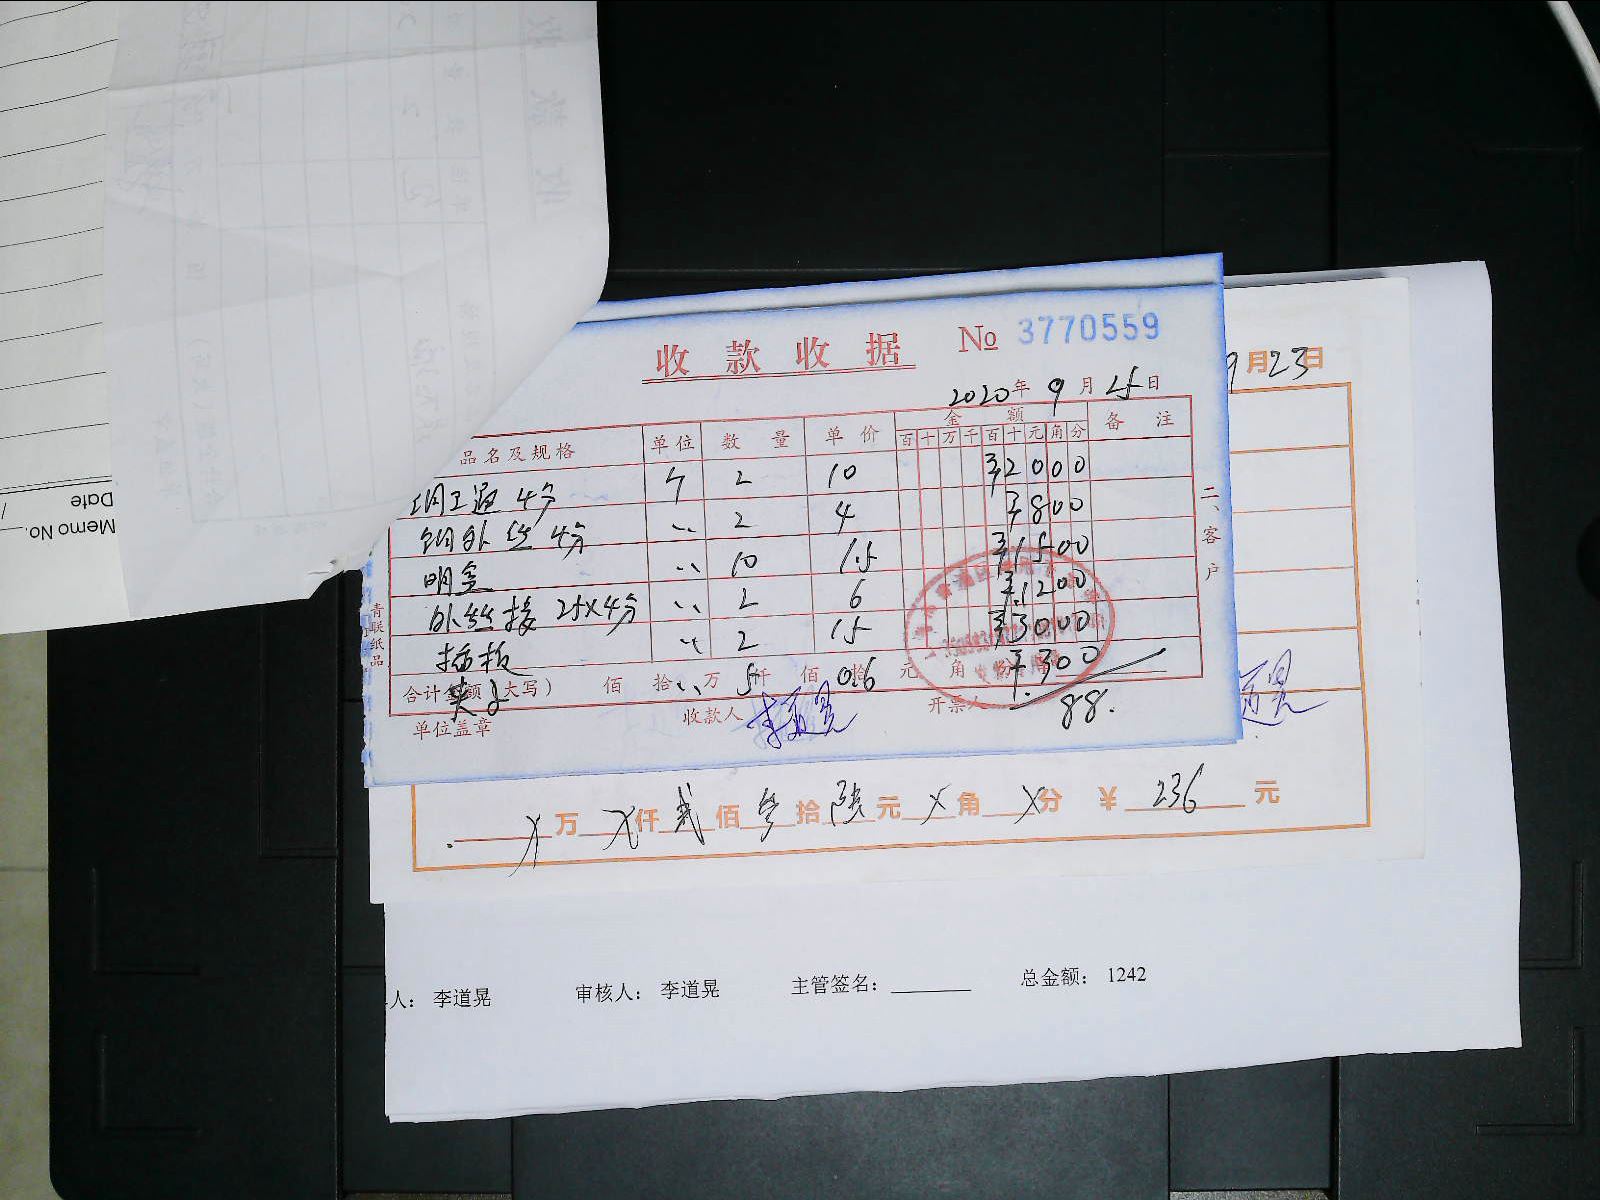 收款收据 № 3770559
2020年9月25日
9月23日
品名及规格 单位 数量 单价 金额 备注
百十万千百十元角分
铜三通 4分 个 2 10 ¥2000
铜外丝 4分 〃 2 4 ¥800
明盒 〃 10 1.5 ¥1500
外丝接 25×4分 〃 2 6 ¥1200
插板 〃 2 15 ¥3000
夹子 〃 5 0.6 ¥300
合计金额(大写) 佰 拾 万 仟 佰 拾 元 角 分
单位盖章 收款人 李道晃 开票人 88.
二、客户
青联纸品
X万X仟贰佰叁拾陆元X角X分 ¥236元
人: 李道晃 审核人: 李道晃 主管签名: 总金额: 1242
Memo No.
Date